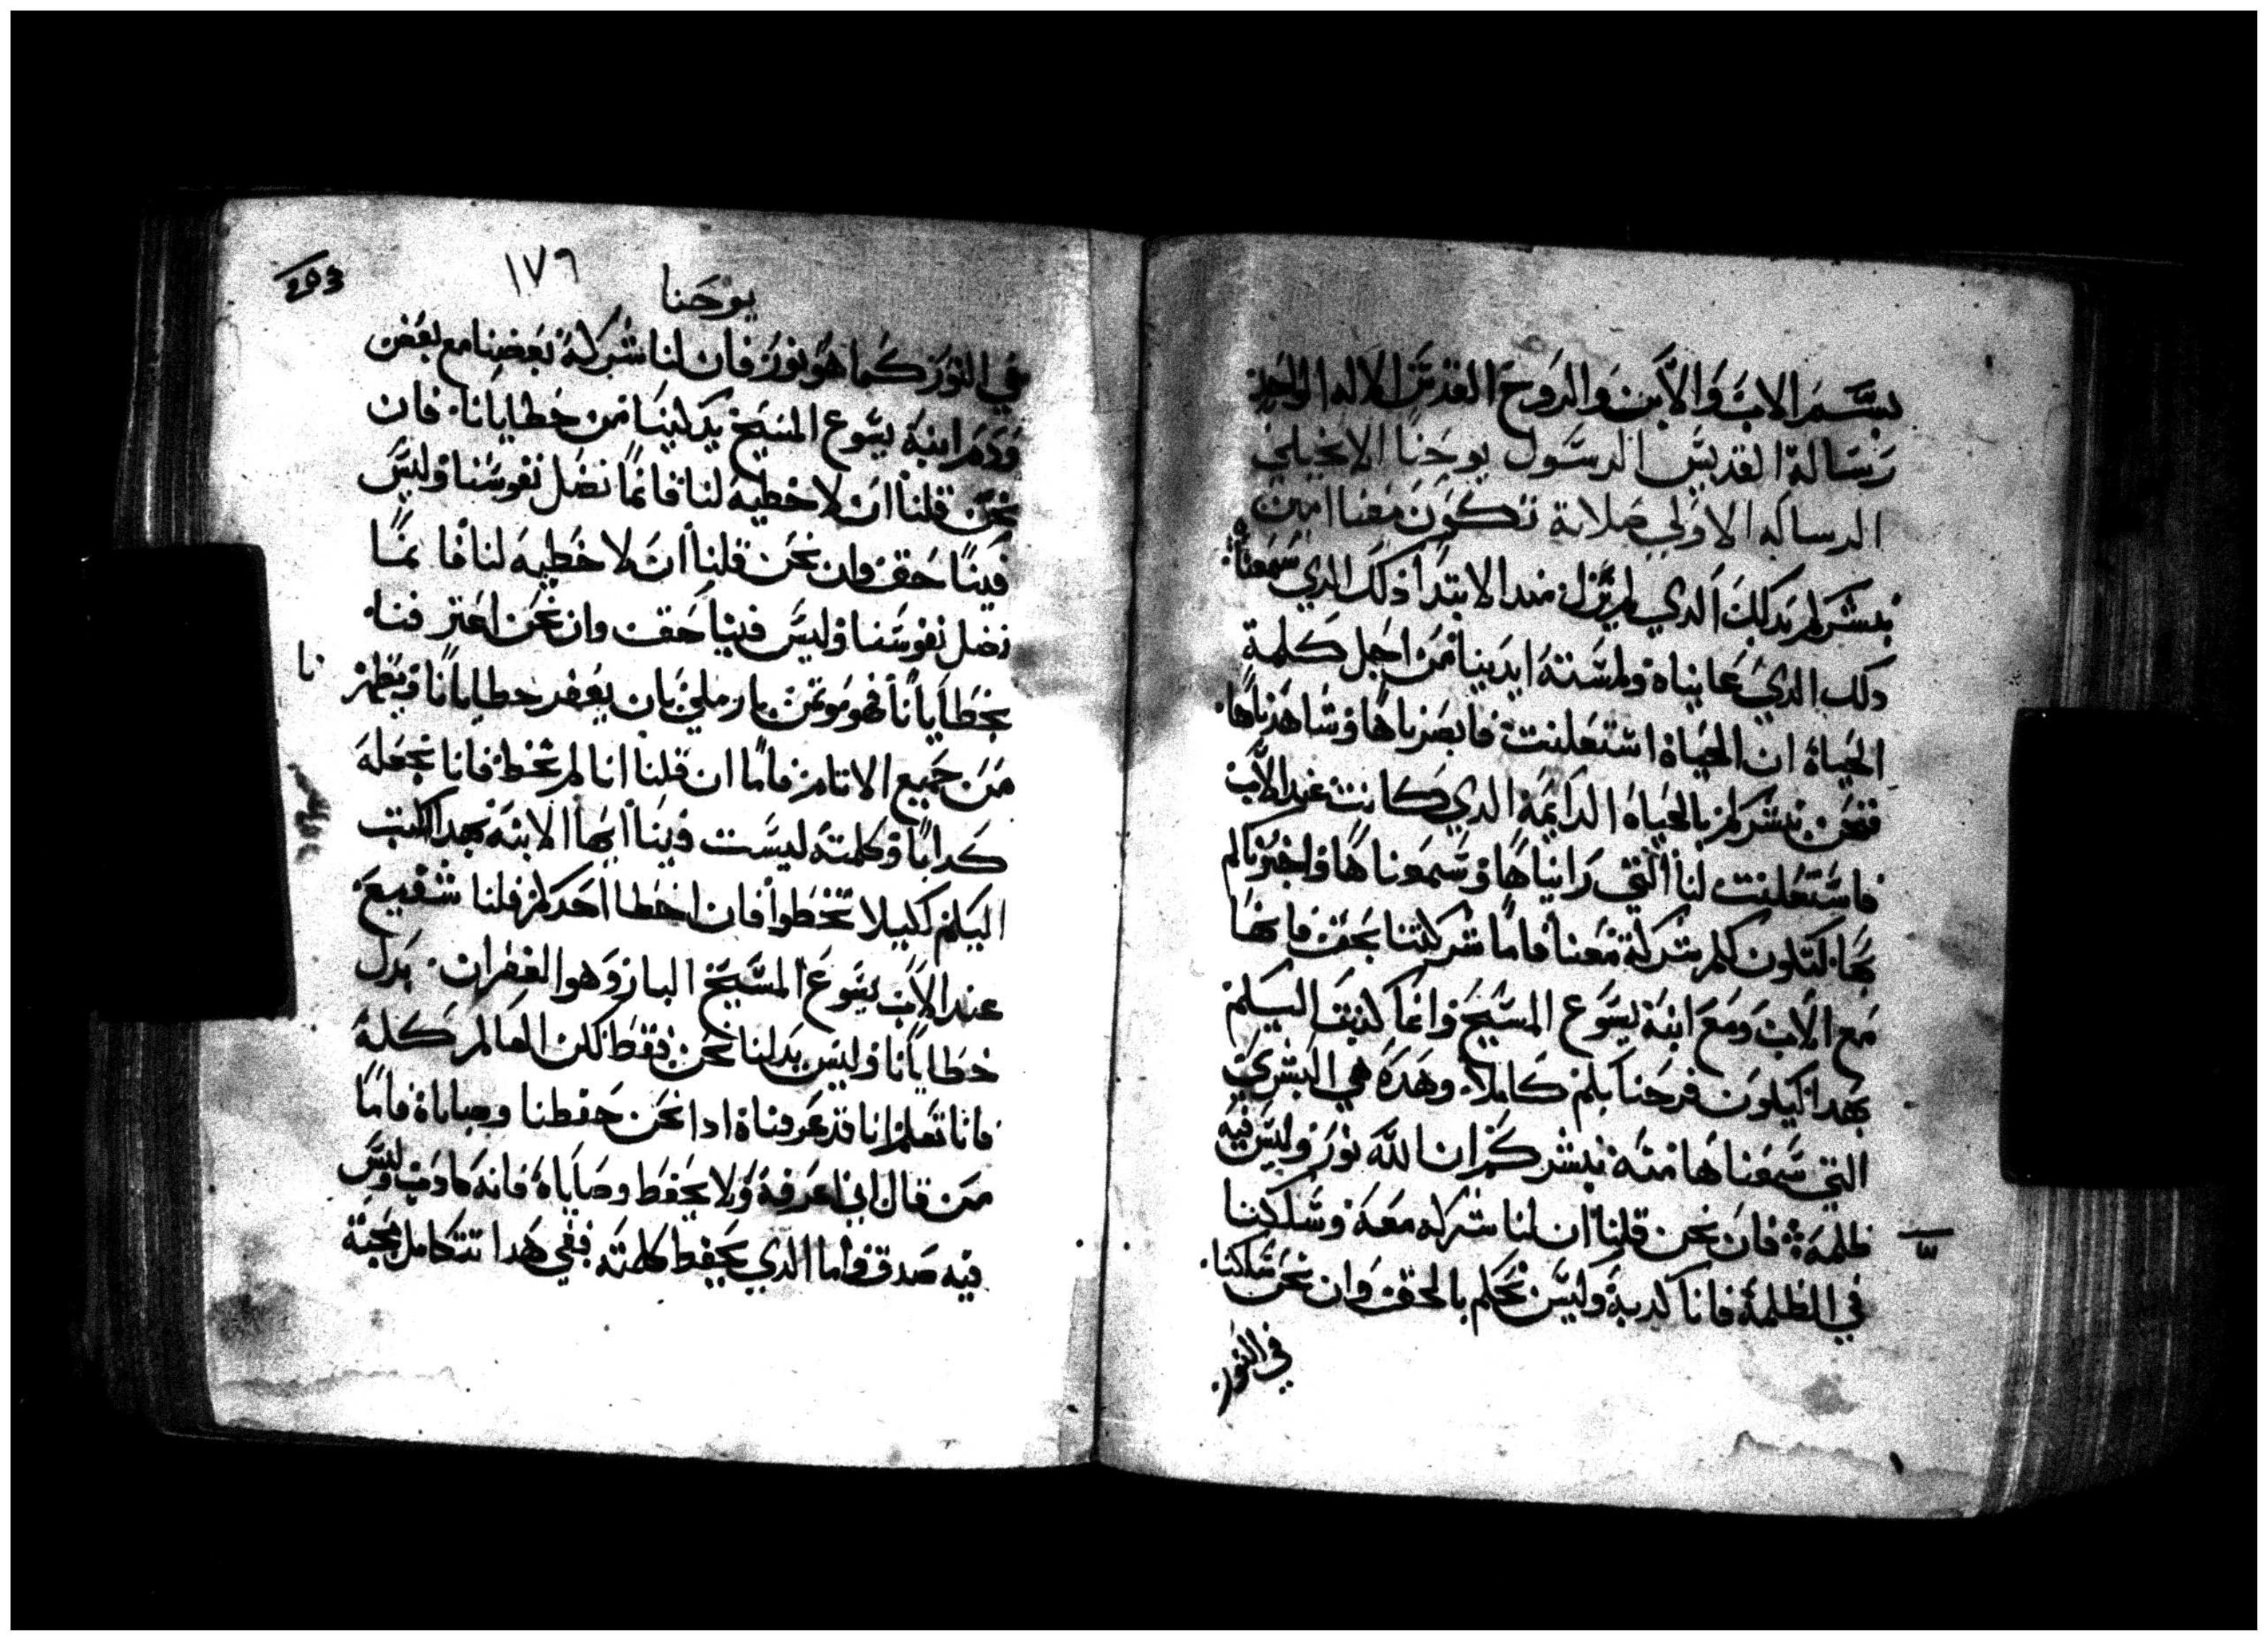 بسم الاب والابن والروح القدس الاله الواحد
رسالة القديس الرسول يوحنا الانجيلي
الرساله الاولي صلاته تكون معنا امين
نبشركم بدلك الدي لم يزل مند الابتدا ذلك الدي سمعناه
دلك الدي عايناه ولمسته ايدينا من اجل كلمة
الحياة ان الحياة استعلنت فابصرناها وشاهدناها
فنحن نبشركم بالحياه الدايمة الدي كانت عند الاب
فاستعلنت لنا التي رايناها وسمعناها واخبرناكم
بها لتكون لكم شركة معنا فاما شركتنا بحق فانها
مع الاب ومع ابنه يسوع المسيح وانما كتبت اليكم
بهدا ليكون فرحنا بكم كاملا وهده هي البشري
التي سمعناها منه نبشركم ان الله نور وليس فيه
ظلمة فان نحن قلنا ان لنا شركه معه وسلكنا
في الظلمة فانا كدبة وليس نتكلم بالحق وان نحن سلكنا
في النور
203
١٧٦
يوحنا
في النور كما هو نور فان لنا شركة بعضنا مع بعض
ودم ابنه يسوع المسيح يدكينا من خطايانا فان
نحن قلنا ان لا خطيه لنا فانما نضل نفوسنا وليس
فينا حق وان نحن قلنا ان لا خطيه لنا فانما
نضل نفوسنا وليس فينا حق وان نحن اعترفنا
بخطايانا فهو موتمن بار ملي بان يغفر خطايانا ويطهرنا
من جميع الاتام فاما ان قلنا انا لم نخط فانا نجعله
كدابا وكلمته ليست فينا ايها الابنه بهدا اكتب
اليكم لكيلا تخطوا فان اخطا احدكم فلنا شفيع
عند الاب يسوع المسيح البار وهو الغفران بدل
خطايانا وليس بدلنا نحن فقط لكن العالم كله
فانا نعلم انا قد عرفناه ادا نحن حفطنا وصاياه فاما
من قال اني اعرفه ولا يحفط وصاياه فانه كادب وليس
فيه صدق واما الدي يحفط كلمته ففي هدا تتكامل محبة